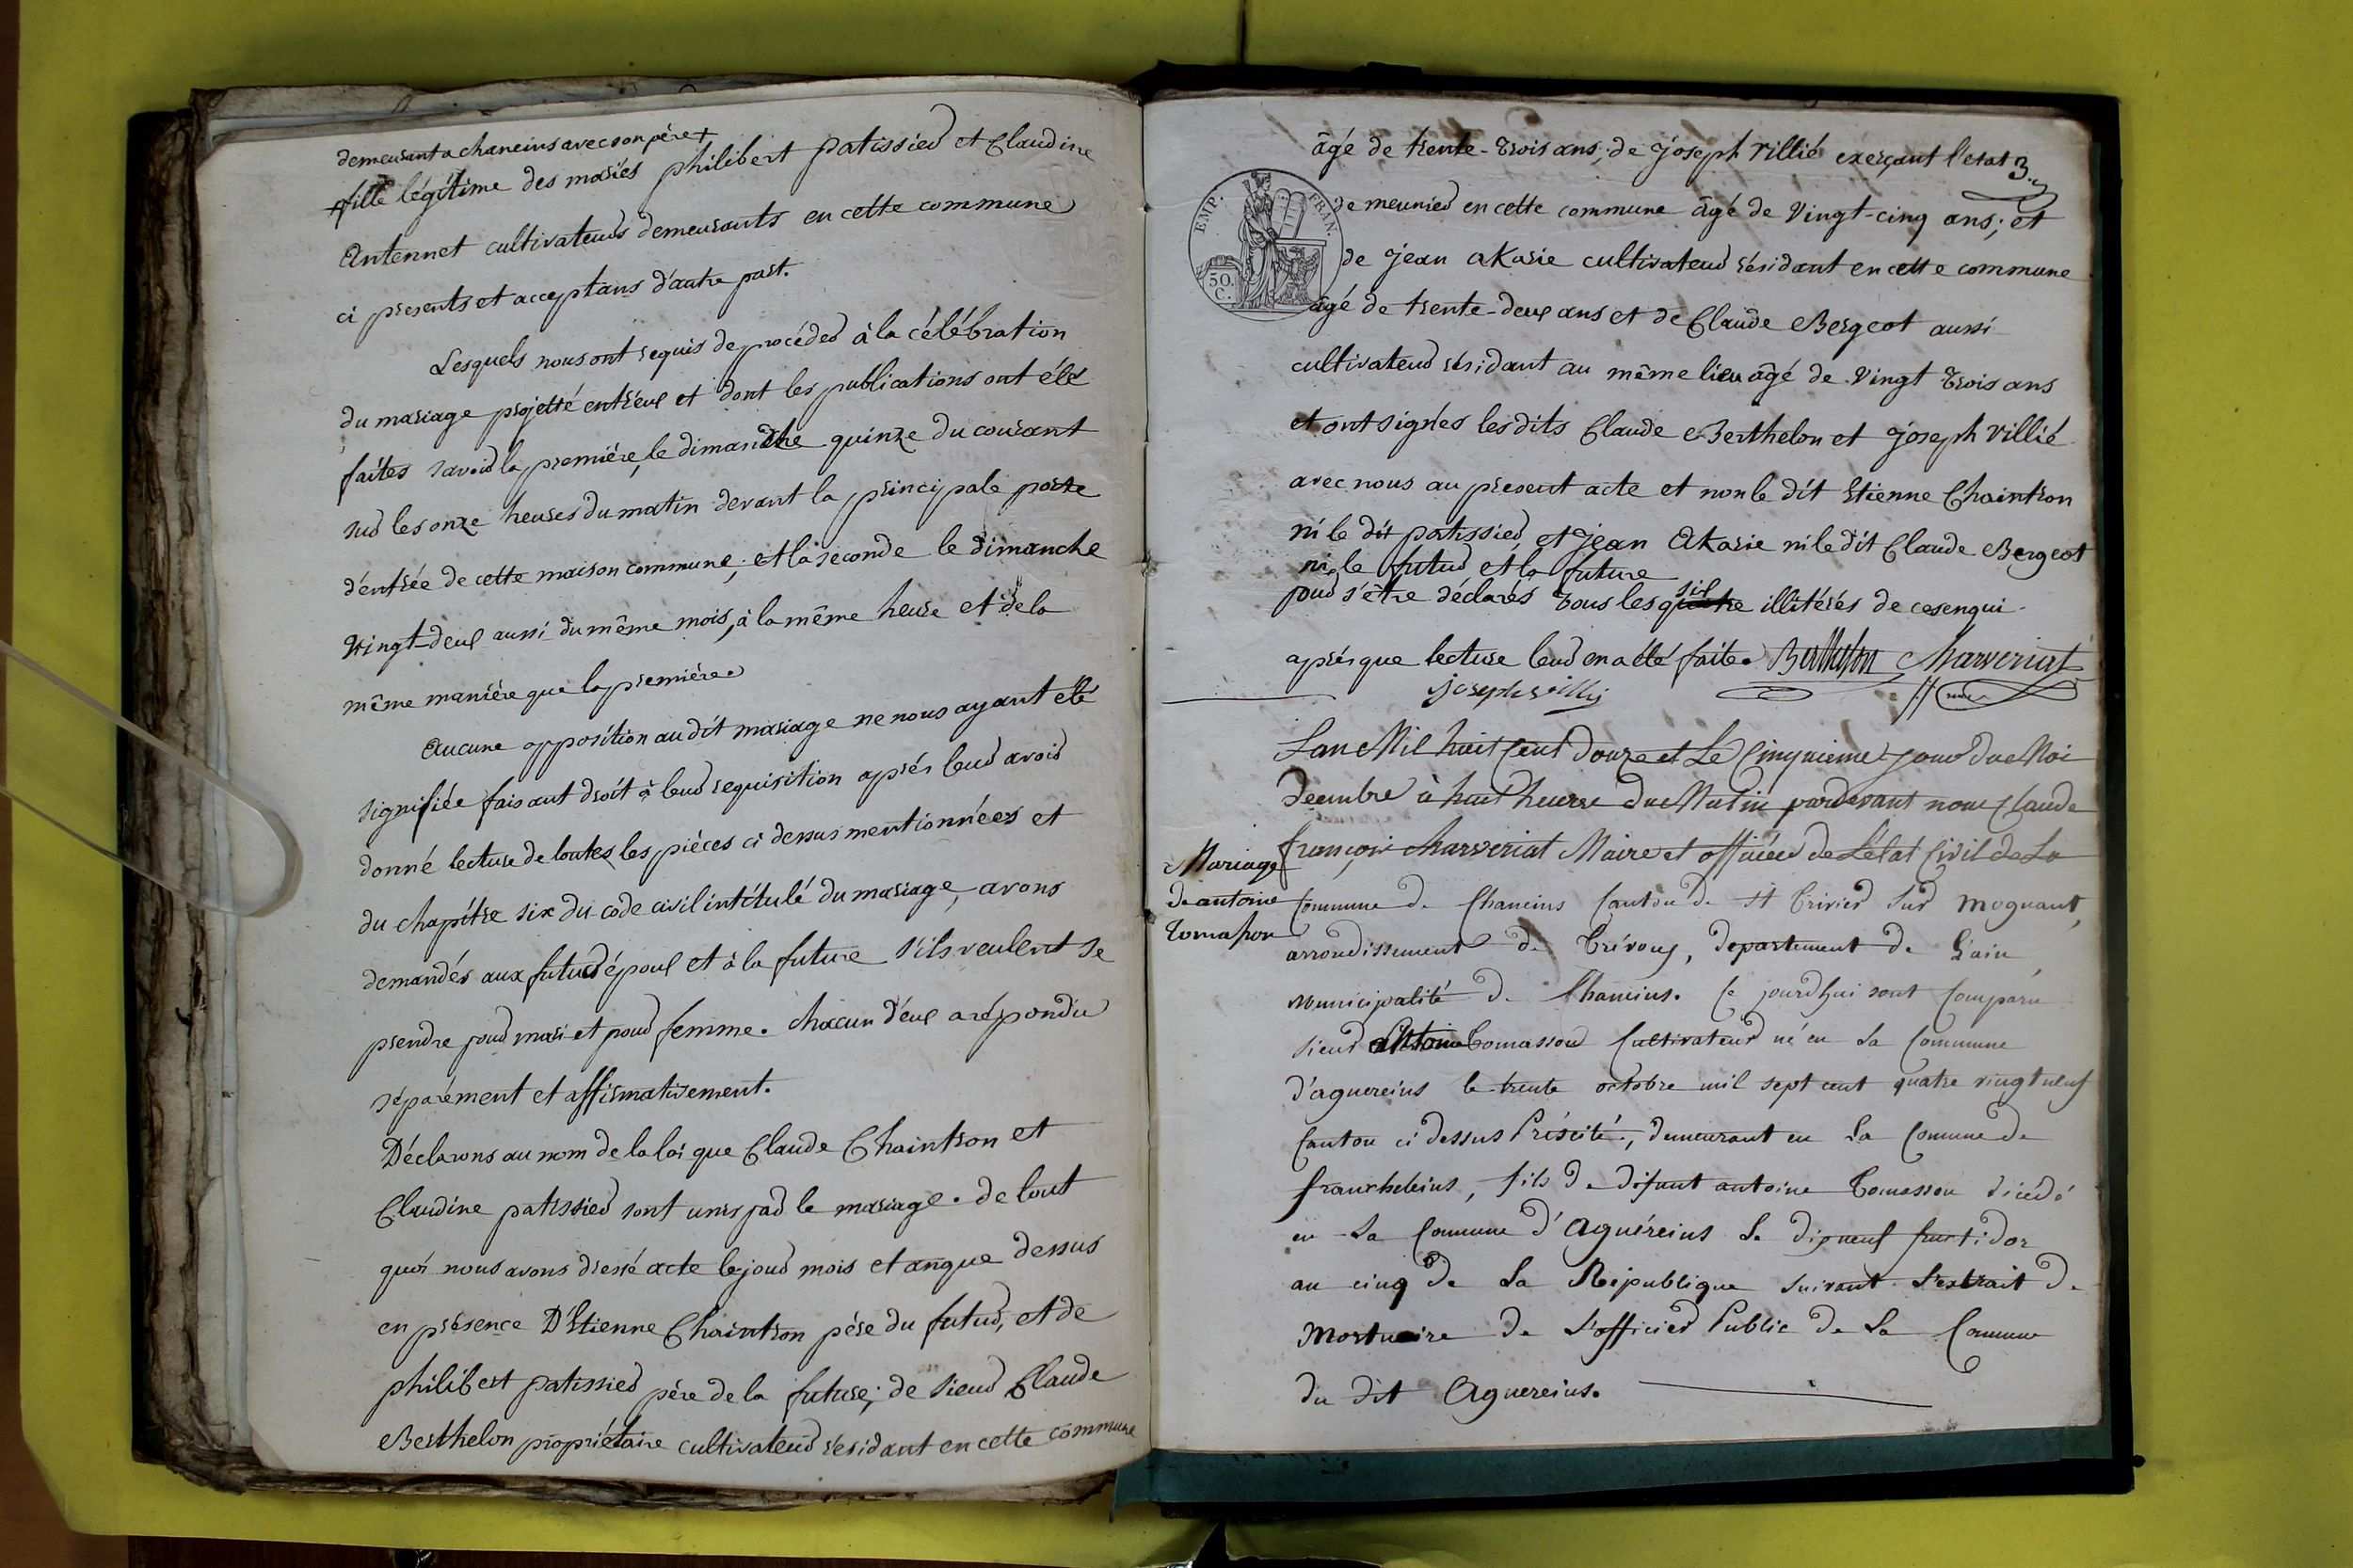 demeurant a chaneins avec son père +
+ fille légitime des mariés philibert patissier et Claudine
Antennet cultivateurs demeurants en cette commune
ci presents et acceptans d'autre part.
Lesquels nous ont requis de procéder à la célébration
du mariage projetté entr'eux et dont les publications ont été
faites savoir la première, le dimanche quinze du courant
sur les onze heures du matin devant la principale porte
d'entrée de cette maison commune; et la seconde le dimanche
vingt-deux aussi du même mois, à la même heure et de la
même manière que la première
Aucune opposition au dit mariage ne nous ayant été
signifiée faisant droit à leur requisition après leur avoir
donné lecture de toutes les pièces ci dessus mentionnées et
du chapitre six du code civil intitulé du mariage, avons
demandés aux futur époux et à la future s'ils veulent se
prendre pour mari et pour femme. chacun d'eux a répondu
séparément et affirmativement.
Déclarons au nom de la loi que Claude Chaintron et
Claudine patissier sont unis par le mariage. de tout
quoi nous avons dressé acte le jour mois et an que dessus
en présence D'Etienne Chaintron père du futur, et de
philibert patissier père de la future; de sieur Claude
Berthelon propriétaire cultivateur résidant en cette commune
âgé de trente-trois ans; de joseph villié exerçant l'état 3.
EMP. FRAN.
50. C.
de meunier en cette commune âgé de vingt-cinq ans; et
de jean akarie cultivateur résidant en cette commune
âgé de trente-deux ans et de Claude Bergeot aussi
cultivateur résidant au même lieu âgé de vingt trois ans
et ont signés les dits Claude Berthelon et joseph villié
avec nous au present acte et non le dit Etienne Chaintron
ni le dit patissier, et jean Akarie ni le dit Claude Bergeot
ni le futur et la future
pour s'être déclarés tous les quatre six illitérés de ce enqui
après que lecture leur en a été faite. Berthelon Charveriat
joseph villié
L'an Mil huit Cent Douze et Le Cinquieme jour du Moi
Decembre à huit heures du Matin pardevant nous Claude
françois Charveriat Maire et officier de L'état Civil de La
Mariage
de antoine
Tomason
Commune de Chaneins Canton de St trivier sur mognant,
arrondissement de Trévoux, département de L'ain,
Municipalité de Chaneins. Ce jourdhui sont Comparu
sieur Antoine Tomasson Cultivateur né en La Commune
d'aguereins le trente octobre mil sept cent quatre vingt neuf
Canton ci dessus Précité, demeurant en La Comune de
francheleins, fils de défunt antoine Tomasson décédé
en La Commune d'Aguéreins Le dixneuf fructidor
an cinq de La République suivant L'extrait de
Mortuaire de L'officier Public de La Commune
du dit Aguereins.